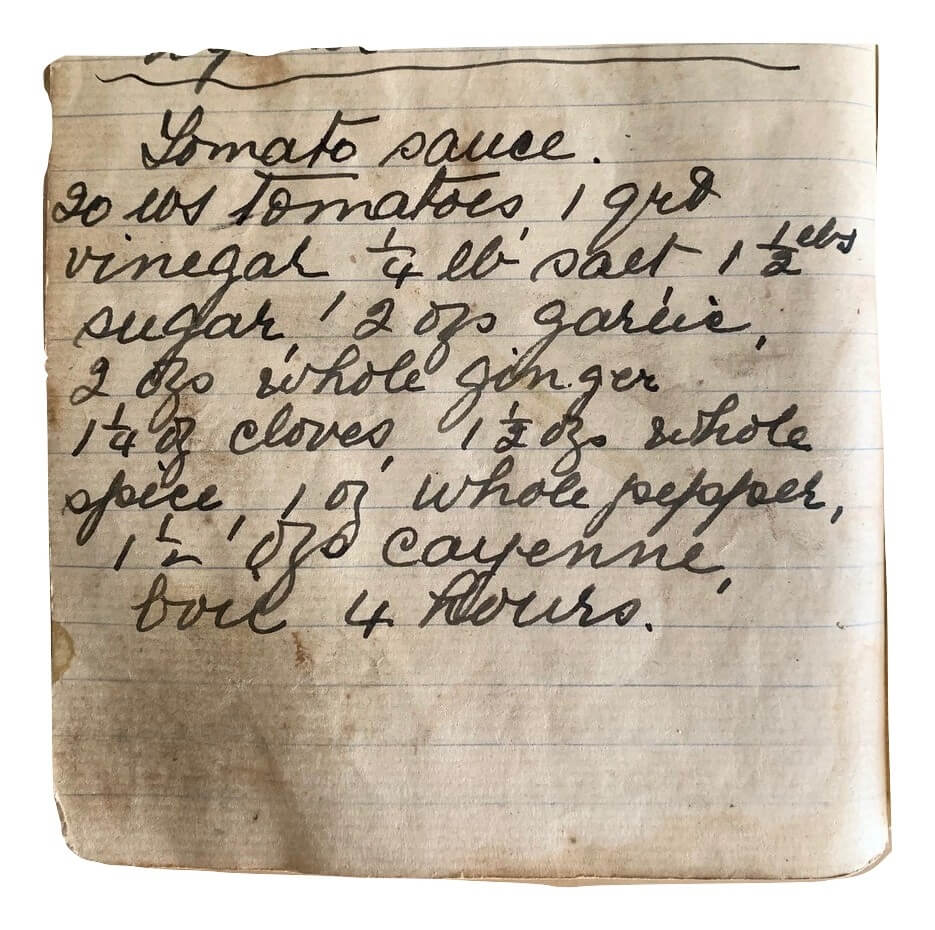 Tomato sauce.
20 lbs tomatoes, 1 qrt
vinegar ¼ lb salt 1 ½ lbs
sugar, 2 ozs garlic,
2 ozs whole ginger
1¼ oz cloves, 1½ ozs whole
spice, 1 oz whole pepper,
1½ ozs cayenne,
boil 4 hours.